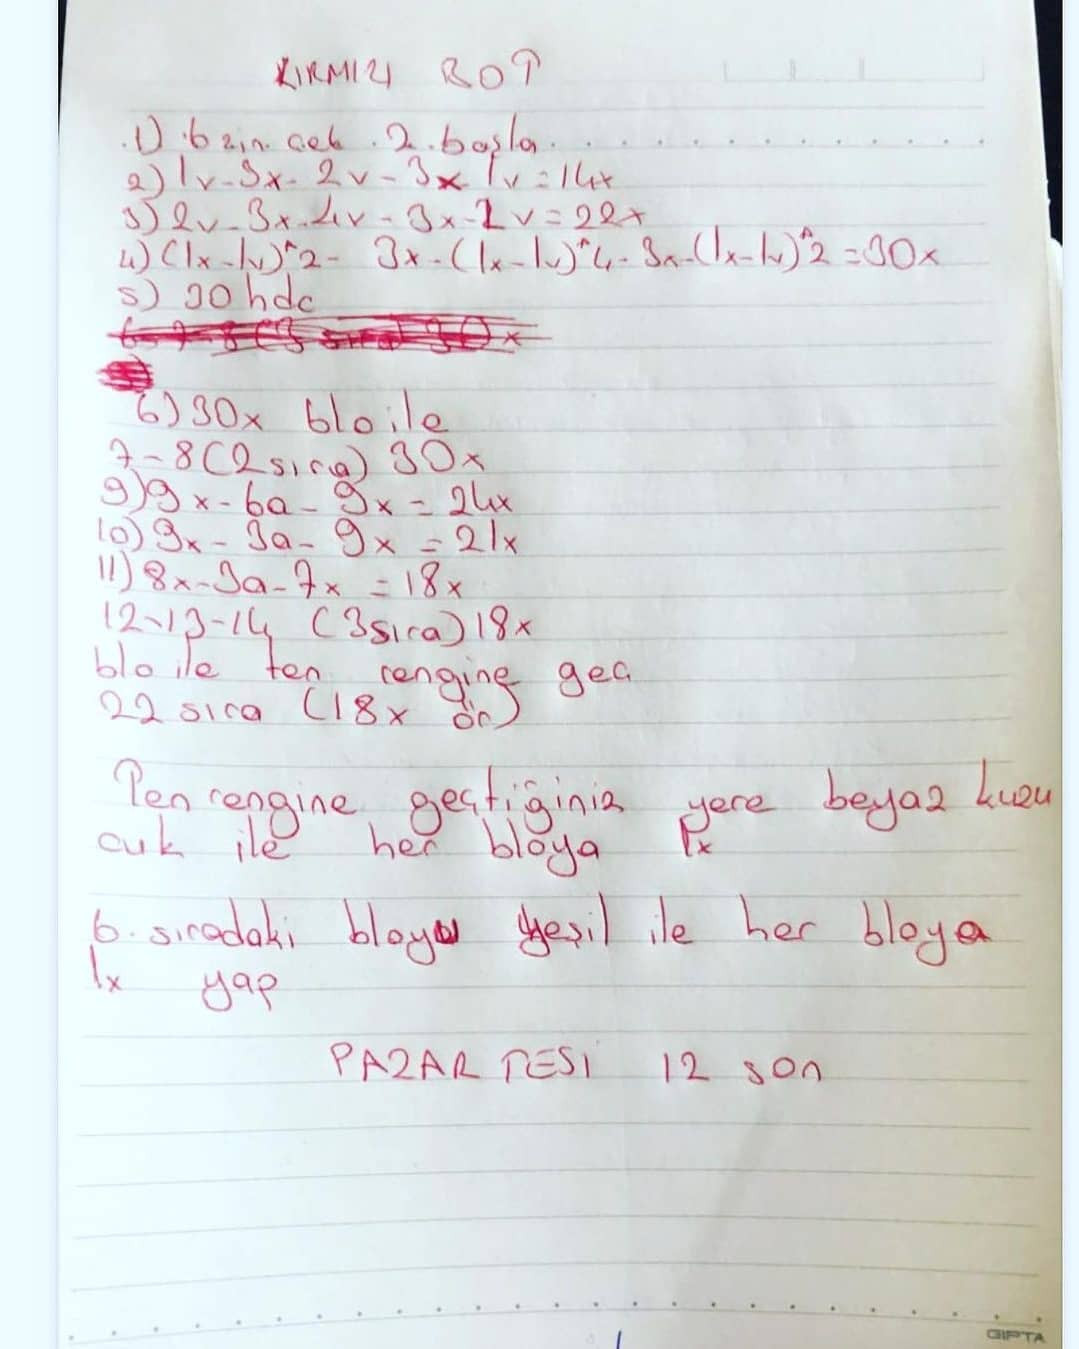 KIRMIZI BOT
1) 6 zin. çek. 2. başla.
2) 1v-3x-2v-3x 1v=14x
3) 2v-3x-4v-3x-2v=22x
4) (1x-1v)^2- 3x-(1x-1v)^4-3x-(1x-1v)^2=30x
5) 30 hdc
6) 30x blo ile
7-8 (2 sıra) 30x
9) 9x-6a-9x=24x
10) 9x-3a-9x=21x
11) 8x-3a-7x=18x
12-13-14 (3 sıra) 18x
blo ile ten rengine geç
22 sıra (18x ör)
Ten rengine geçtiğiniz yere beyaz kuzu
cuk ile her bloya 1x
6. sıradaki bloyu yeşil ile her bloya
1x yap
PAZARTESİ 12 son
GIPTA